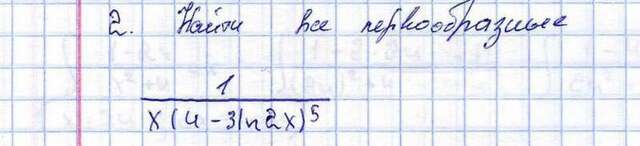 2. Найти все первообразные
1
x(4-3ln2x)⁵